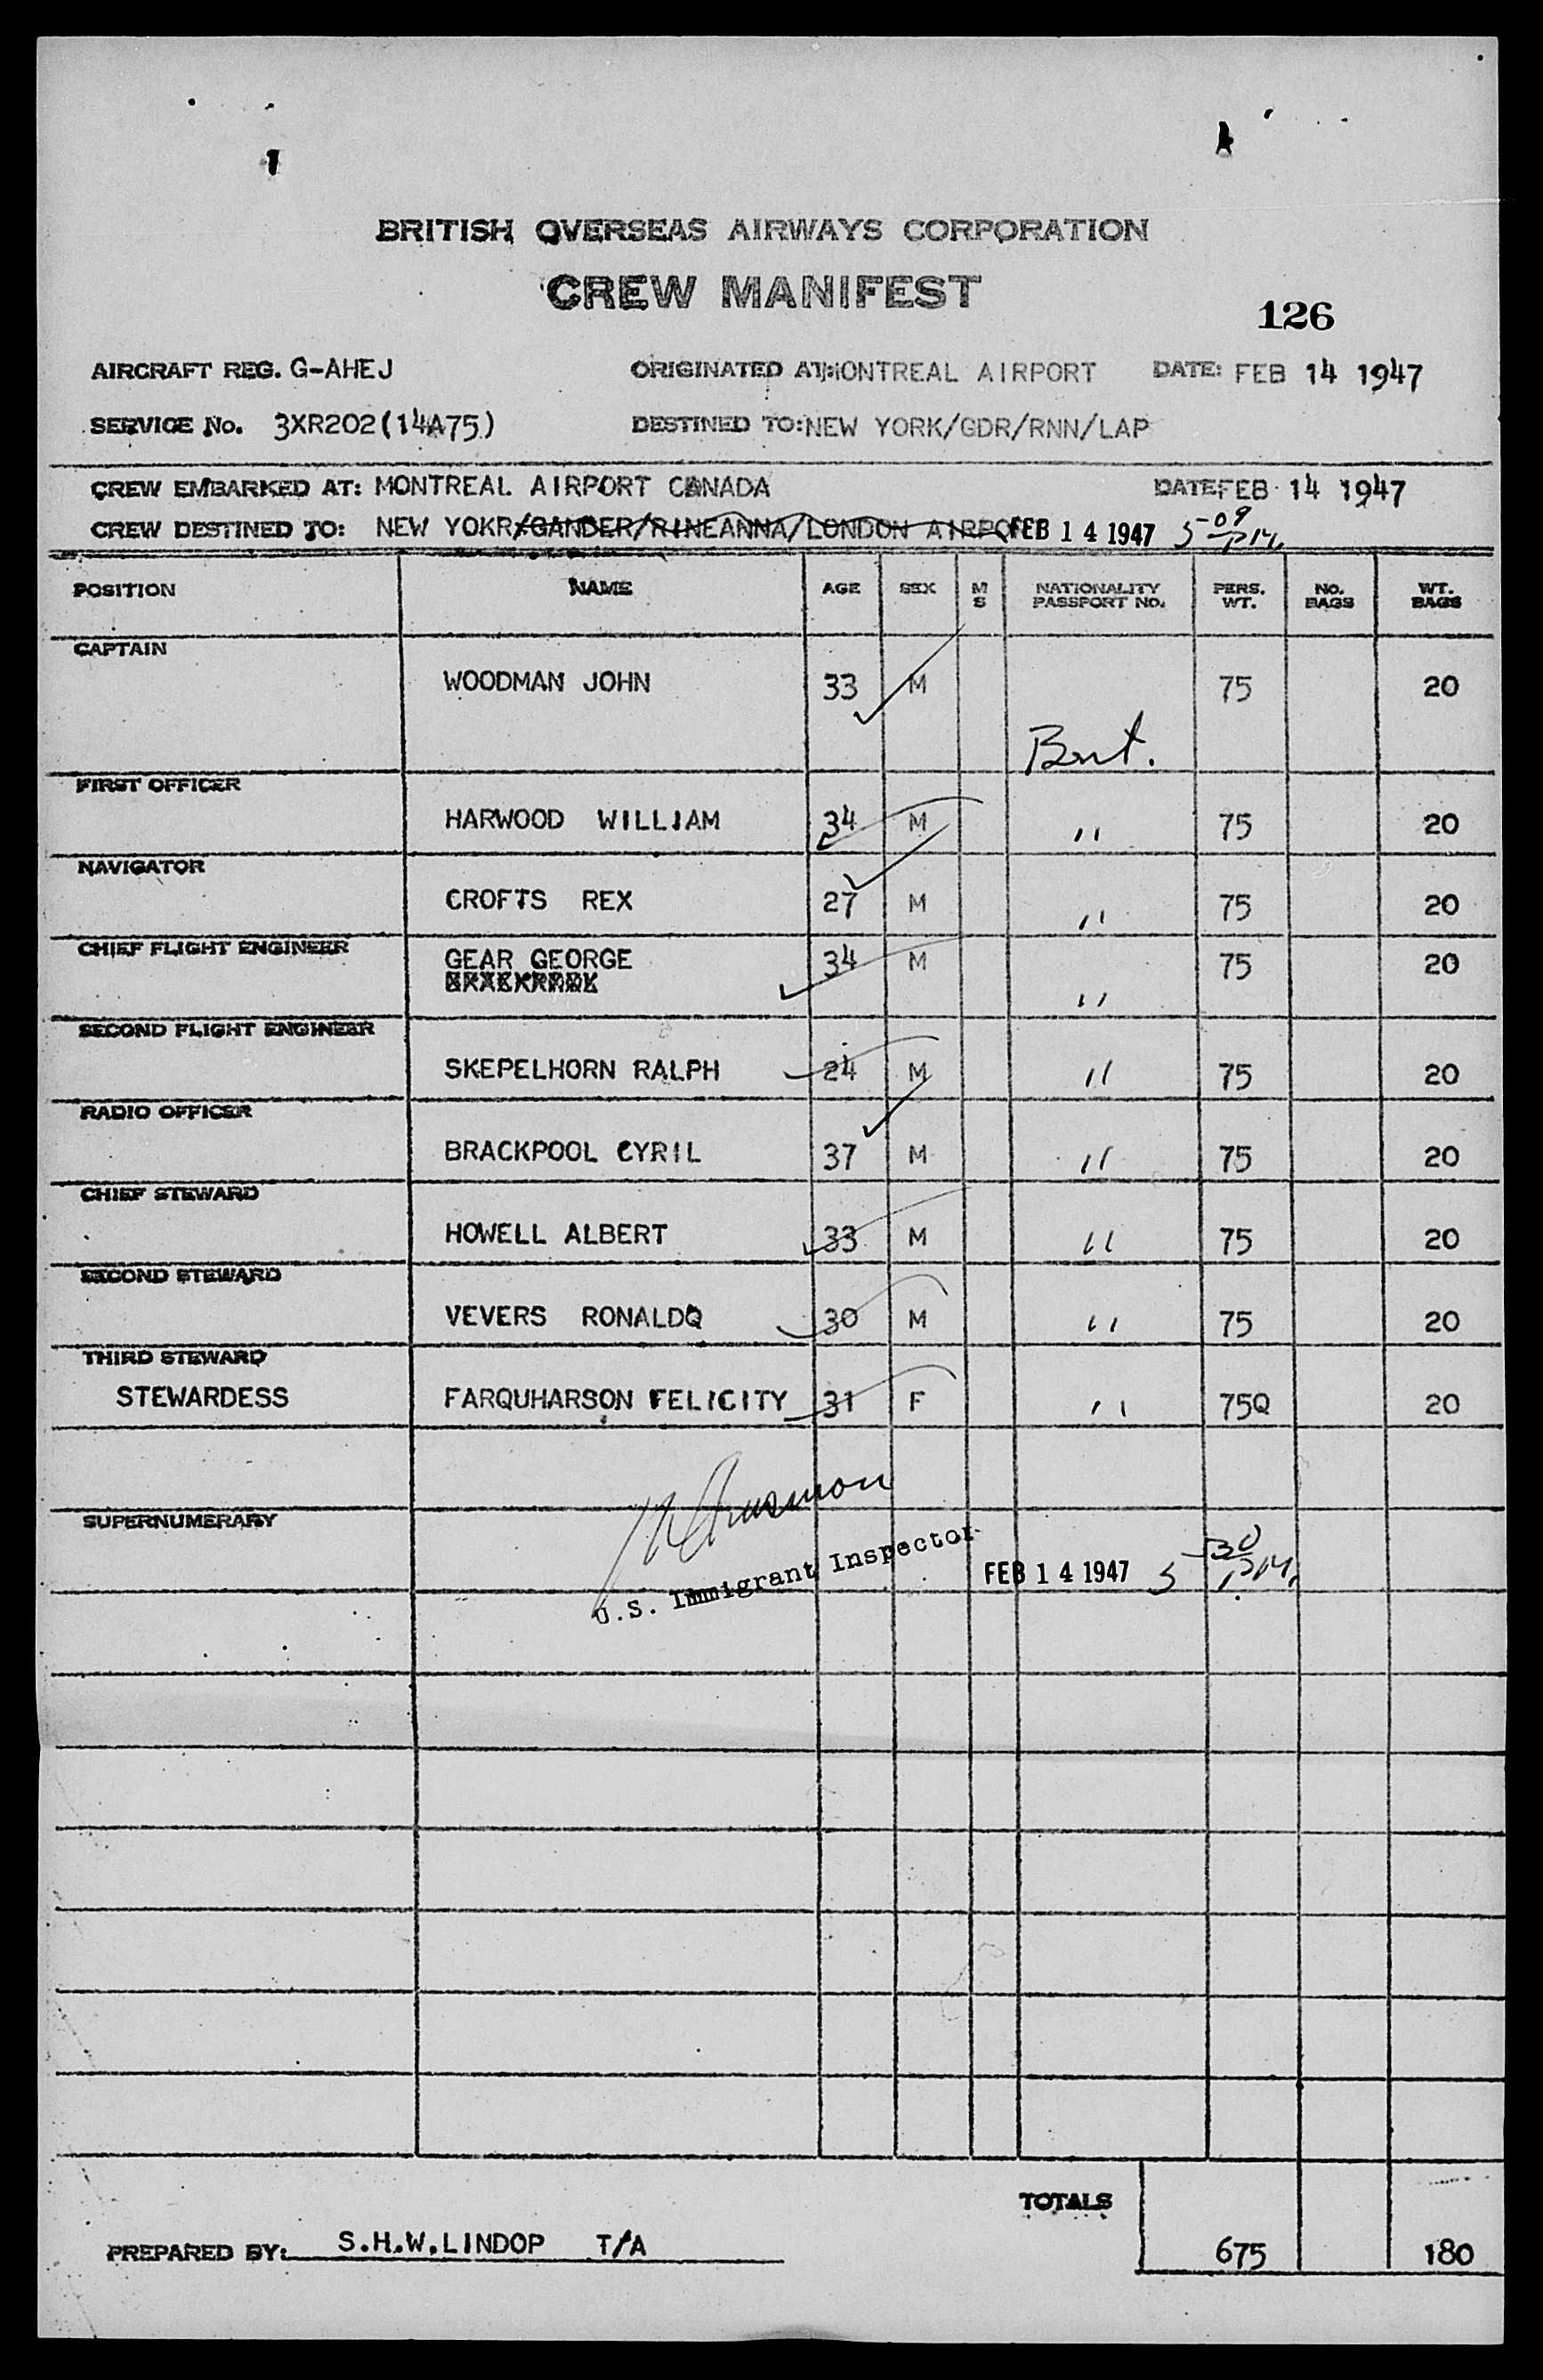 BRITISH OVERSEAS AIRWAYS CORPORATION
CREW MANIFEST
126
AIRCRAFT REG. G-AHEJ ORIGINATED AT: MONTREAL AIRPORT DATE: FEB 14 1947
SERVICE No. 3XR202(14A75) DESTINED TO: NEW YORK/GDR/RNN/LAP
CREW EMBARKED AT: MONTREAL AIRPORT CANADA DATE FEB 14 1947
CREW DESTINED TO: NEW YOKR/GANDER/RINEANNA/LONDON AIRPO FEB 14 1947 5-09 P.M.
POSITION NAME AGE SEX M S NATIONALITY PASSPORT No. PERS. WT. NO. BAGS WT. BAGS
CAPTAIN
WOODMAN JOHN 33 M 75 20
Brit.
FIRST OFFICER
HARWOOD WILLIAM 34 M " 75 20
NAVIGATOR
CROFTS REX 27 M " 75 20
CHIEF FLIGHT ENGINEER
GEAR GEORGE 34 M " 75 20
SECOND FLIGHT ENGINEER
SKEPELHORN RALPH 24 M " 75 20
RADIO OFFICER
BRACKPOOL CYRIL 37 M " 75 20
CHIEF STEWARD
HOWELL ALBERT 33 M " 75 20
SECOND STEWARD
VEVERS RONALDQ 30 M " 75 20
THIRD STEWARD
STEWARDESS FARQUHARSON FELICITY 31 F " 75Q 20
SUPERNUMERARY
U.S. Immigrant Inspector FEB 14 1947 5-30 P.M.
TOTALS
PREPARED BY: S.H.W.LINDOP T/A 675 180